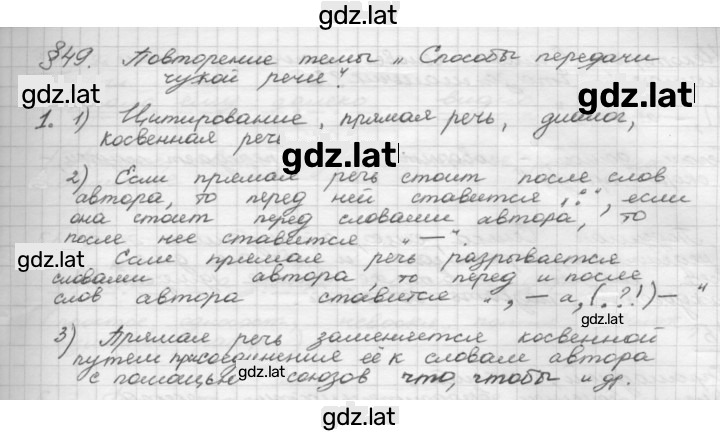 gdz.lat
§49. Повторение темы „Способы передачи
чужой речи".
gdz.lat
gdz.lat
1. 1) Цитирование, прямая речь, диалог,
косвенная речь
gdz.lat
2) Если прямая речь стоит после слов
автора, то перед ней ставится „:", если
она стоит перед словами автора, то
после нее ставится „—".
gdz.lat
Если прямая речь разрывается
словами автора, то перед и после
слов автора ставится „, — а, (.?!) — "
gdz.lat
3) Прямая речь заменяется косвенной
путем присоединения её к словам автора
с помощью союзов что, чтобы и др.
gdz.lat
gdz.lat